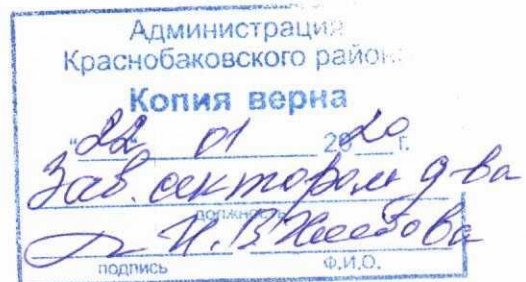 Администрация
Краснобаковского района
Копия верна
"22" 01 2020 г.
Зав. сектором д-ва
должность
Н.В.
подпись Ф.И.О.